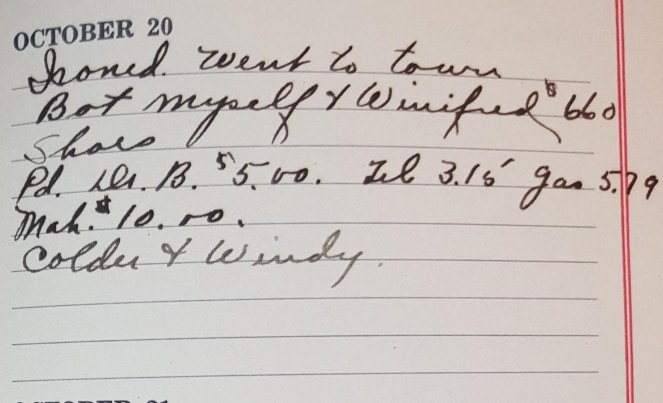 OCTOBER 20
Ironed. Went to town
Bot myself & Winifred $6.60
Shoes
Pd. Dr. B. $5.00. Tel 3.15 gas 5.79
Mah. $10.00.
Colder & Windy.